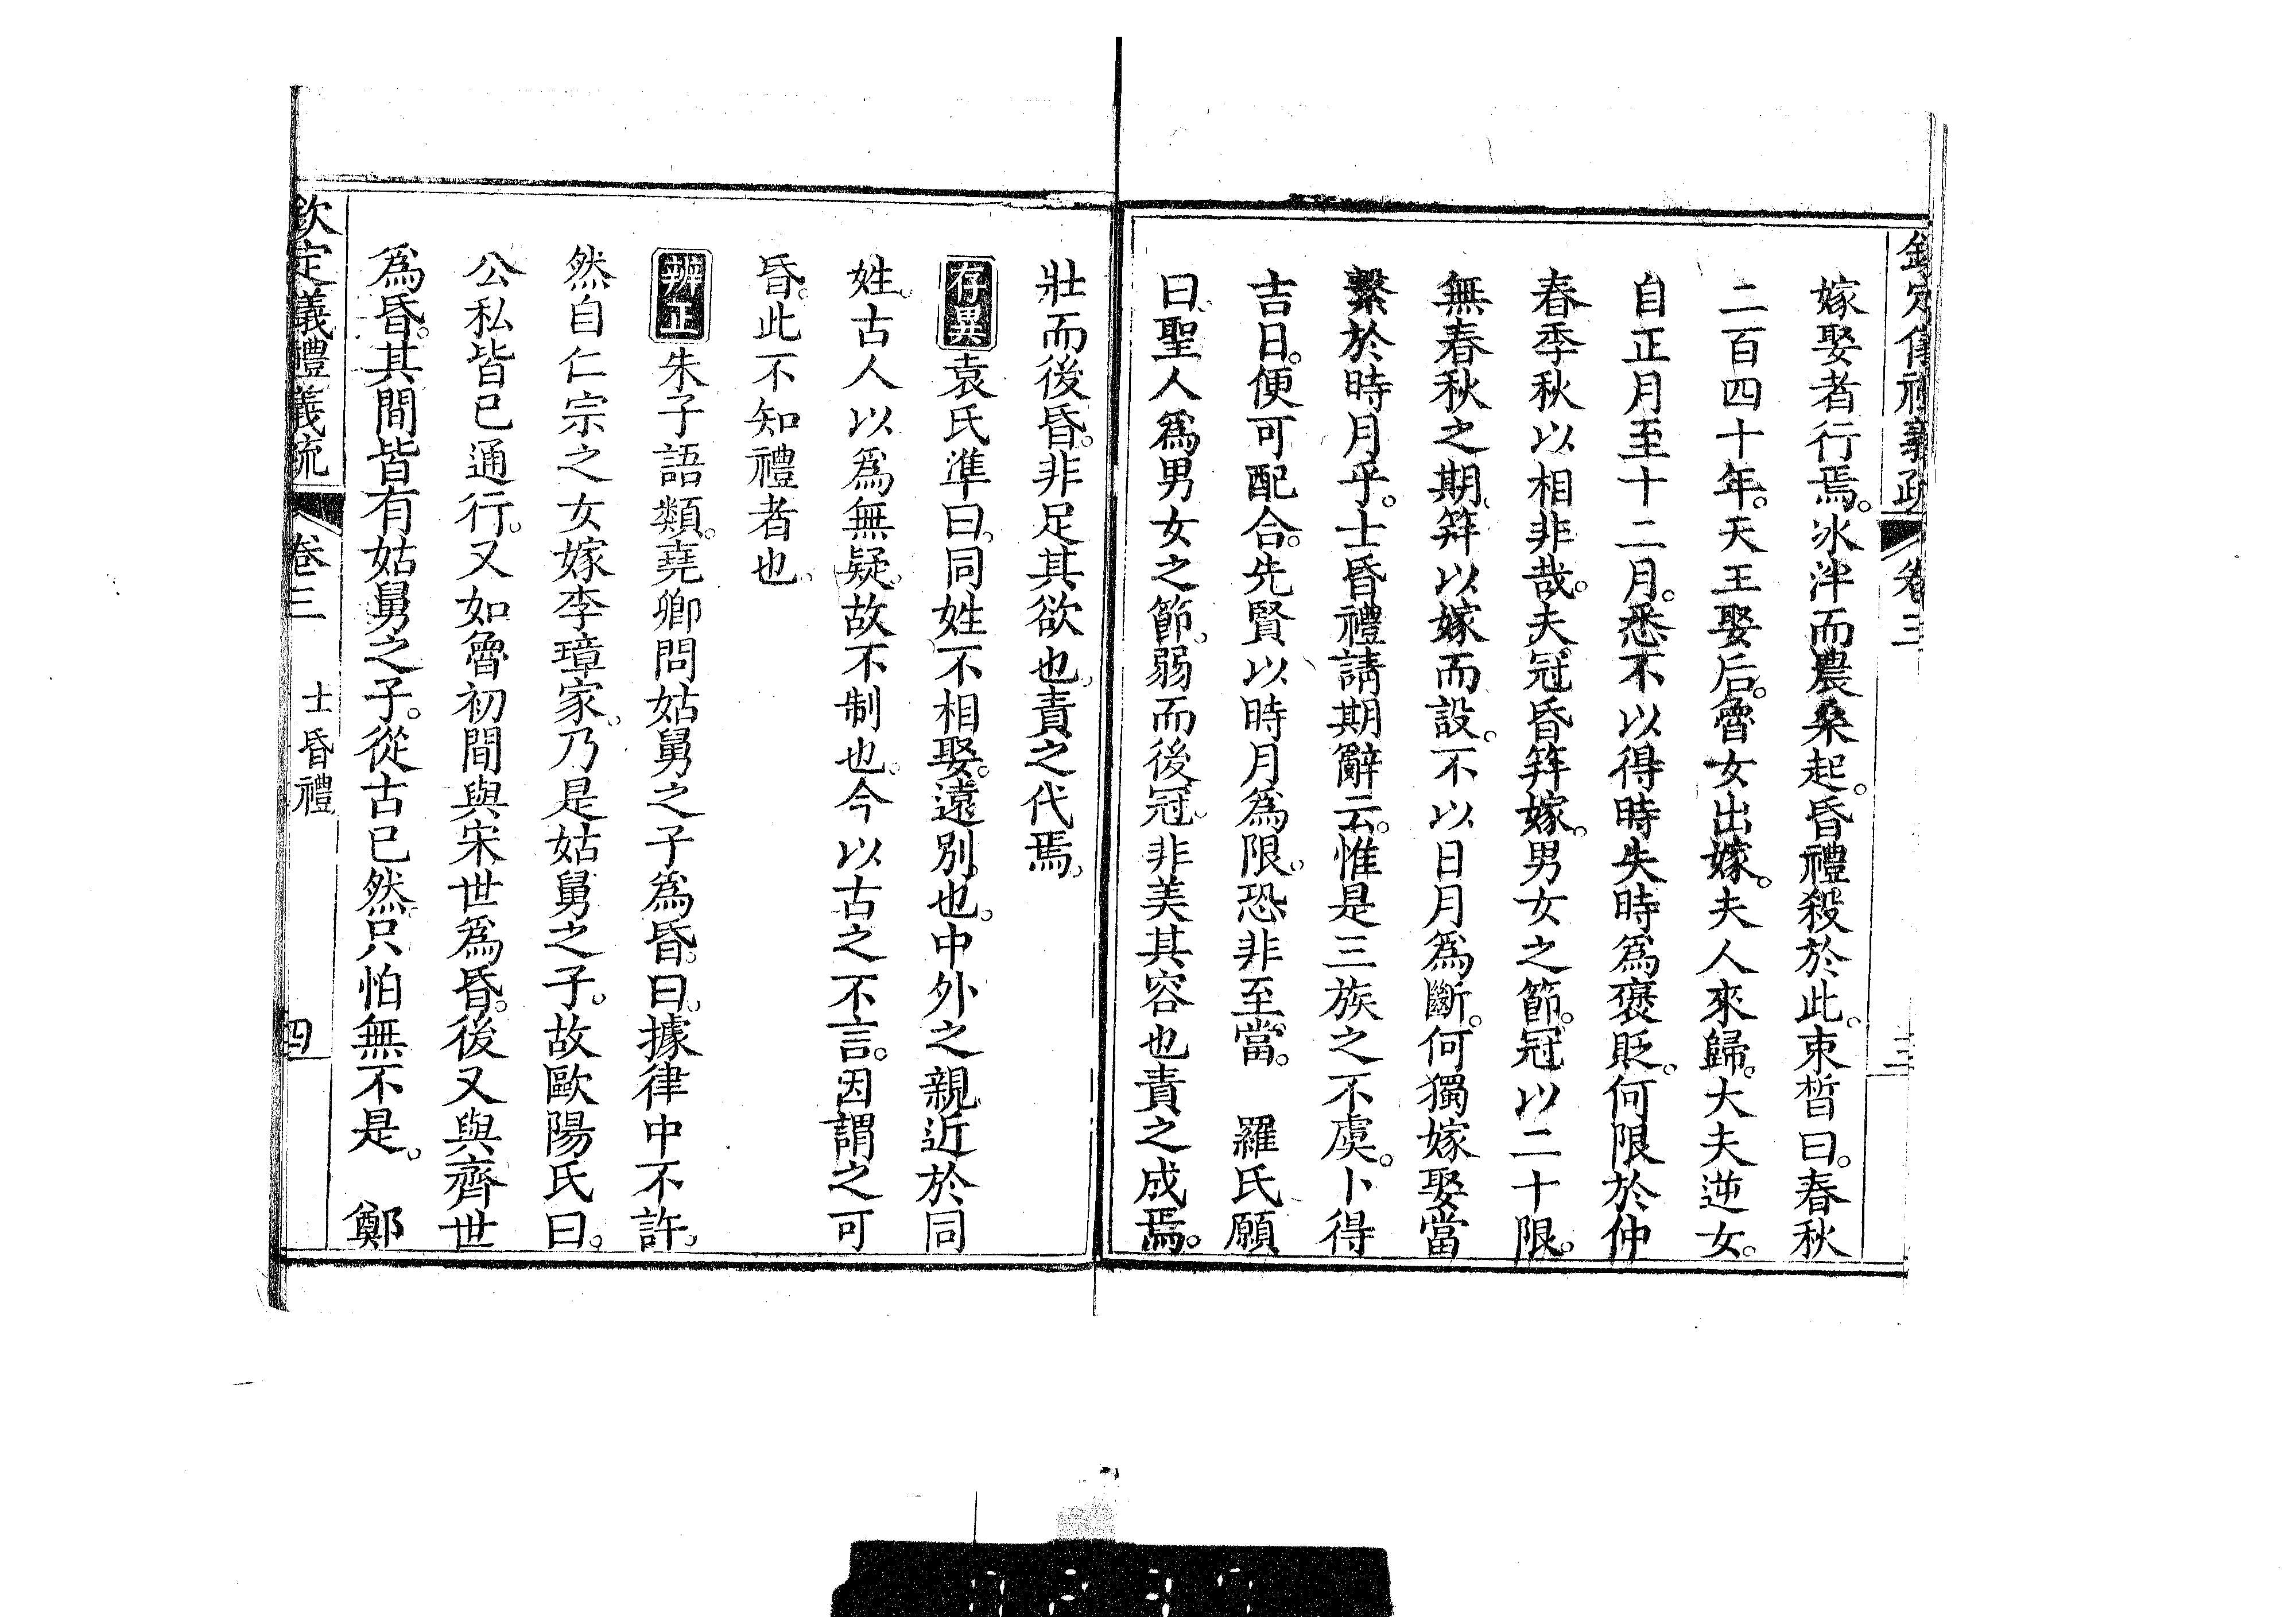 欽定儀禮義疏 卷三 三
嫁娶者行焉。冰泮而農桑起。昏禮殺於此。束皙曰。春秋
二百四十年。天王娶后。魯女出嫁。夫人來歸。大夫逆女。
自正月至十二月。悉不以得時失時爲褒貶。何限於仲
春季秋以相非哉。夫冠昏笄嫁。男女之節。冠以二十限。
無春秋之期。笄以嫁而設。不以日月爲斷。何獨嫁娶當
繫於時月乎。士昏禮請期辭云。惟是三族之不虞。卜得
吉日。便可配合。先賢以時月爲限。恐非至當。 羅氏願
曰。聖人爲男女之節。弱而後冠。非美其容也責之成焉。
壯而後昏。非足其欲也。責之代焉。
存異 袁氏準曰。同姓不相娶。遠別也。中外之親近於同
姓。古人以爲無疑。故不制也。今以古之不言。因謂之可
昏。此不知禮者也。
辨正 朱子語類。堯卿問姑舅之子爲昏。曰。據律中不許。
然自仁宗之女嫁李璋家。乃是姑舅之子。故歐陽氏曰。
公私皆已通行。又如魯初間與宋世爲昏。後又與齊世
爲昏。其間皆有姑舅之子。從古已然。只怕無不是。 鄭
欽定義禮義疏 卷三 士昏禮 四